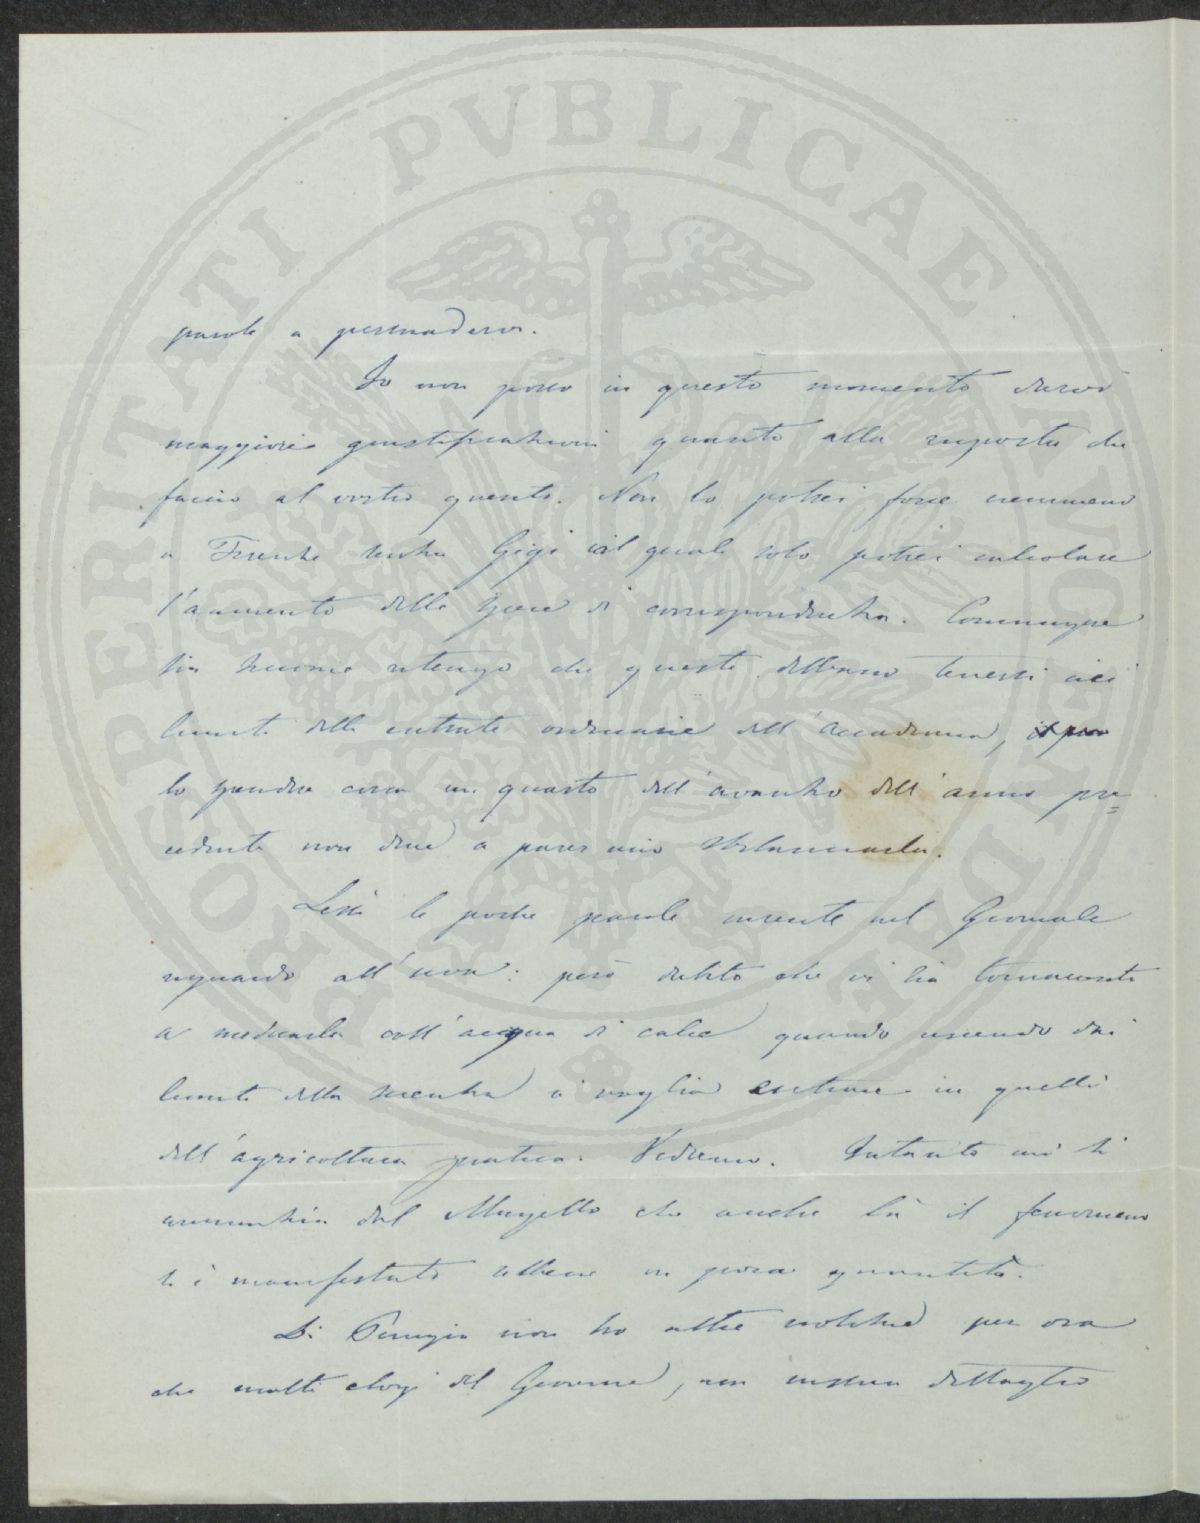 PROSPERITATI PVBLICAE AVGENDAE
parole a persuadervi.
Io non posso in questo momento darvi
maggiori giustificazioni quanto alla risposta che
faccio al vostro quesito. Non lo potrei forse nemmeno
a Firenze senza Gigi col quale solo potrei calcolare
l'aumento delle spese di corrispondenza. Comunque
sia siccome ritengo che queste debbano tenersi nei
limiti delle entrate ordinarie dell'Accademia, il
lo spendere circa un quarto dell'avanzo dell'anno pre=
cedente non deve a parer mio
Lessi le poche parole inserite nel Giornale
riguardo all'uva: però dubito che vi sia tornaconto
a medicarla coll'acqua di calce quando uscendo dai
limiti della scienza si voglia entrare in quelli
dell'agricoltura pratica. Vedremo. Intanto mi si
annunzia dal Mugello che anche là il fenomeno
si è manifestato sebbene in poca quantità.
Di Perugia non ho altre notizie per ora
che molti elogi del Giovane, non nessun dettaglio